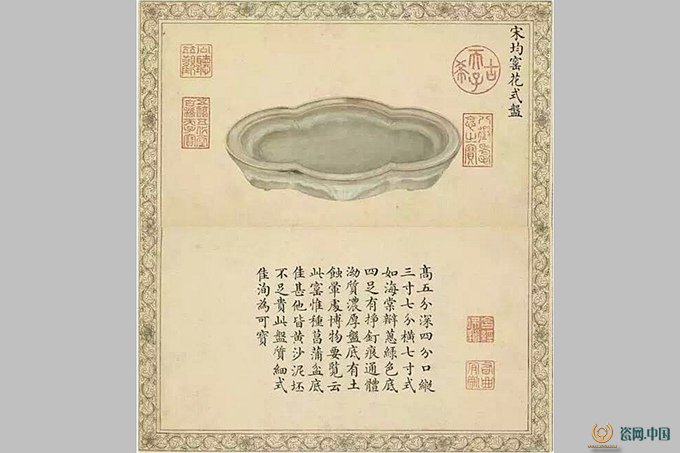 宋均窰花式盤
古希天子
八徵耄念之寶
高五分深四分口縱
三寸七分橫七寸式
如海棠瓣葱綠色底
四足有掙釘痕通體
泑質濃厚盤底有土
蝕暈處博物要覽云
此窰惟種菖蒲盆底
佳甚他皆黃沙泥坯
不足貴此盤質細式
佳洵為可寶
瓷网.中国